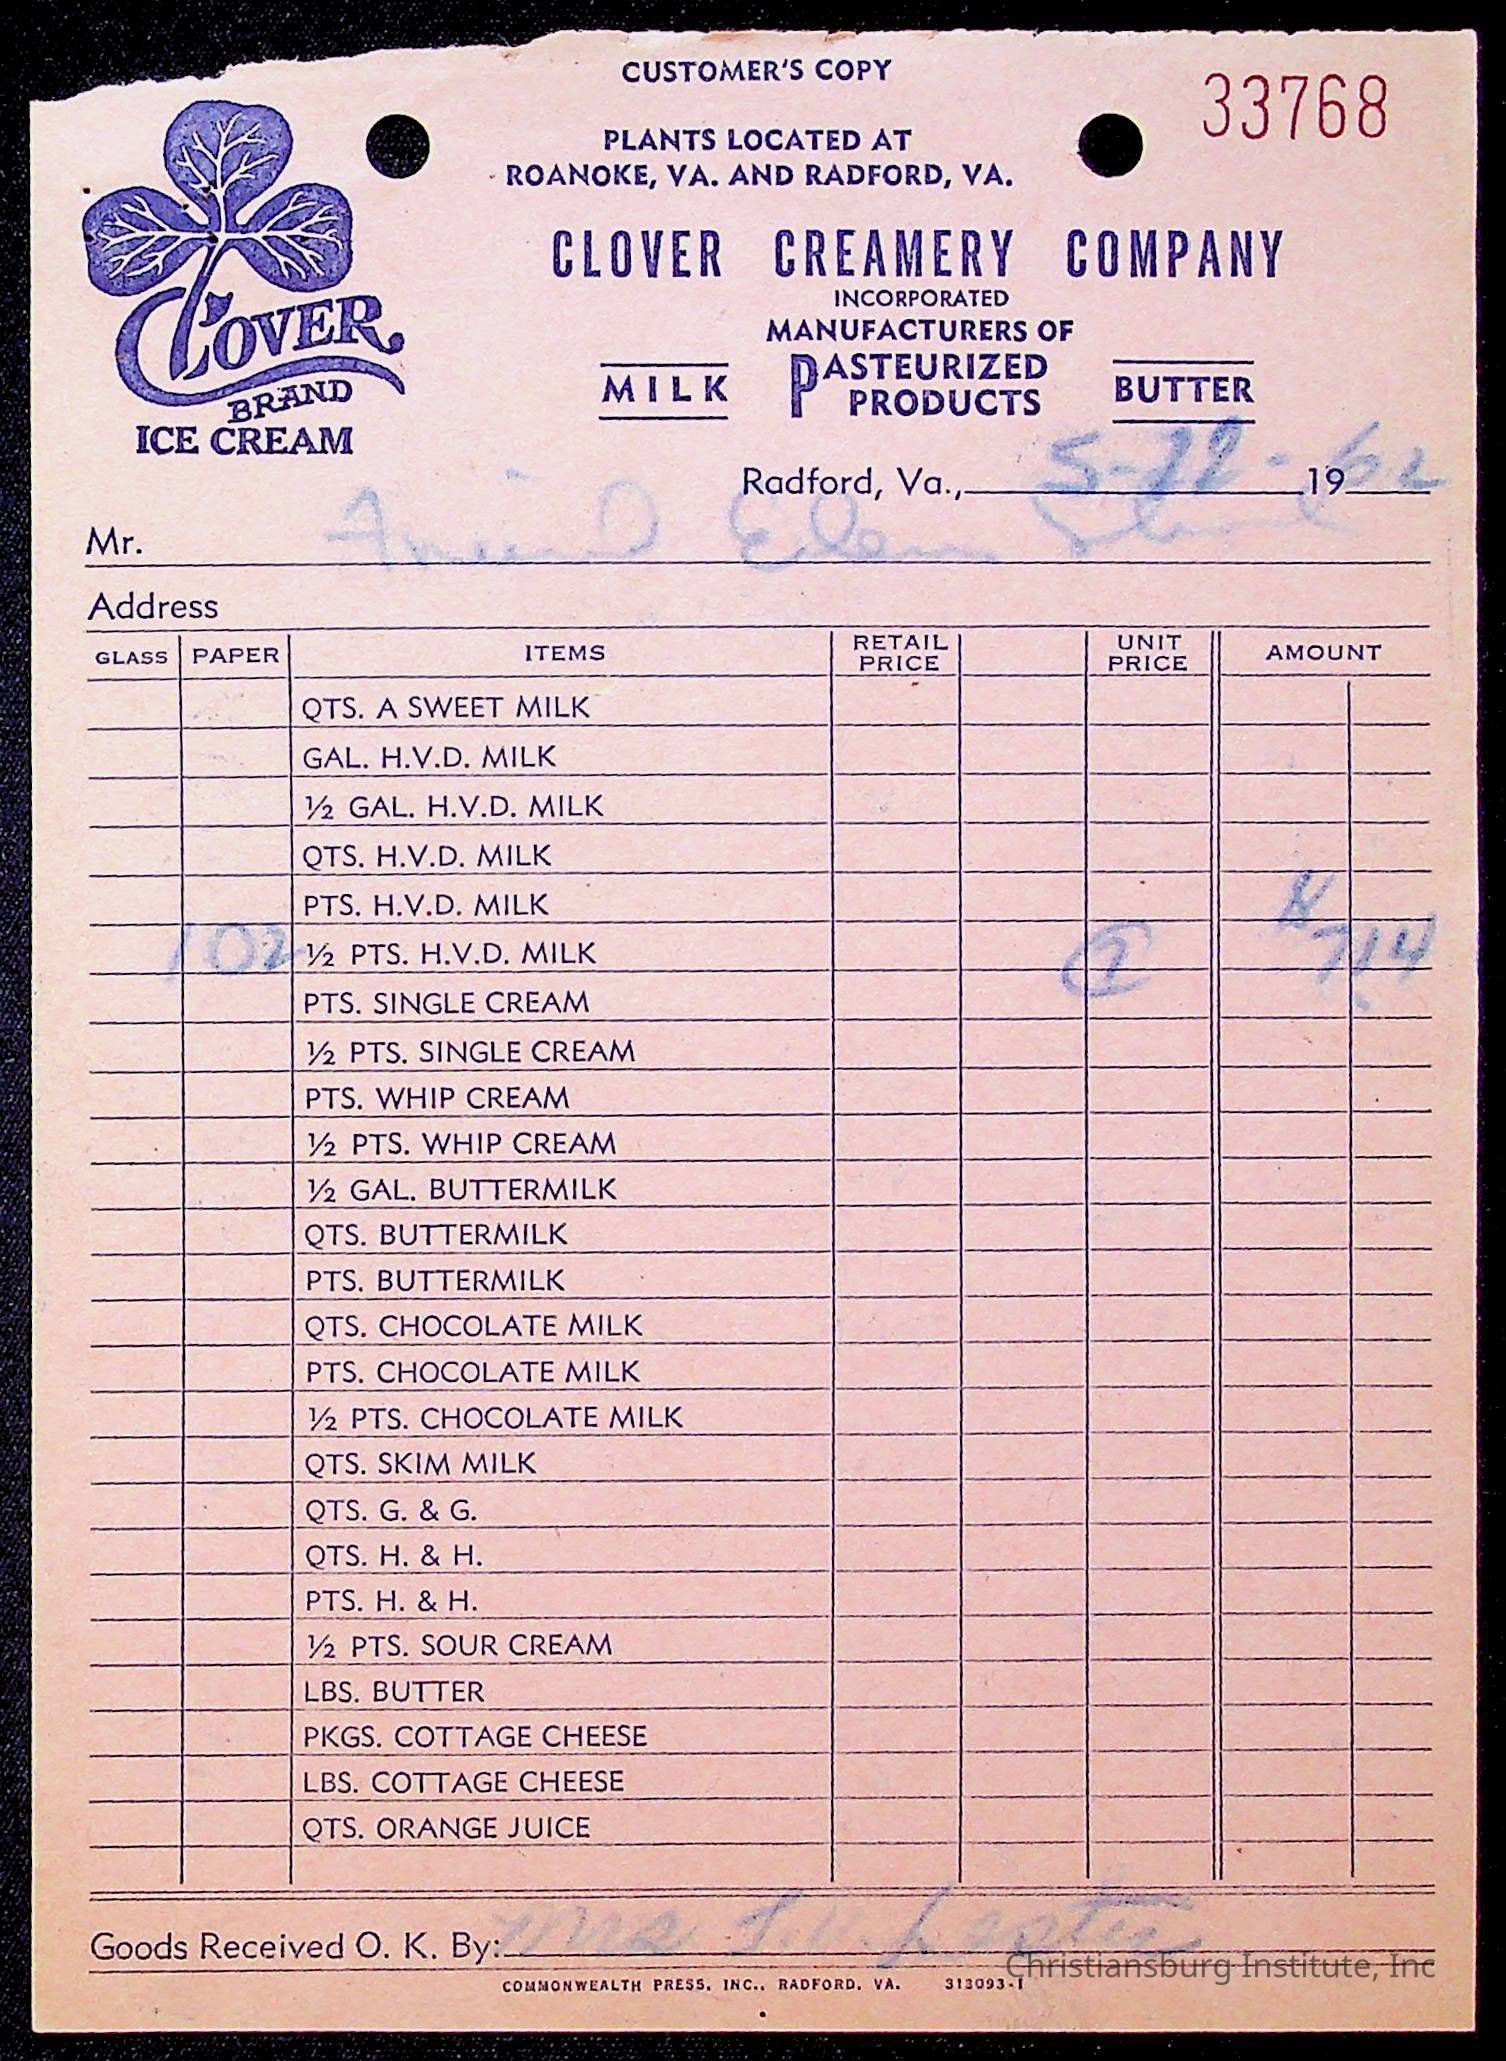 CUSTOMER'S COPY
33768
PLANTS LOCATED AT
ROANOKE, VA. AND RADFORD, VA.
CLOVER CREAMERY COMPANY
INCORPORATED
MANUFACTURERS OF
MILK PASTEURIZED PRODUCTS BUTTER
CLOVER
BRAND
ICE CREAM
Radford, Va., 5- - 62 19
Mr. Elem
Address
GLASS PAPER ITEMS RETAIL PRICE UNIT PRICE AMOUNT
QTS. A SWEET MILK
GAL. H.V.D. MILK
½ GAL. H.V.D. MILK
QTS. H.V.D. MILK
PTS. H.V.D. MILK
102 ½ PTS. H.V.D. MILK 7 714
PTS. SINGLE CREAM
½ PTS. SINGLE CREAM
PTS. WHIP CREAM
½ PTS. WHIP CREAM
½ GAL. BUTTERMILK
QTS. BUTTERMILK
PTS. BUTTERMILK
QTS. CHOCOLATE MILK
PTS. CHOCOLATE MILK
½ PTS. CHOCOLATE MILK
QTS. SKIM MILK
QTS. G. & G.
QTS. H. & H.
PTS. H. & H.
½ PTS. SOUR CREAM
LBS. BUTTER
PKGS. COTTAGE CHEESE
LBS. COTTAGE CHEESE
QTS. ORANGE JUICE
Goods Received O. K. By: Mrs
Christiansburg Institute, Inc
COMMONWEALTH PRESS, INC., RADFORD, VA. 313093-1